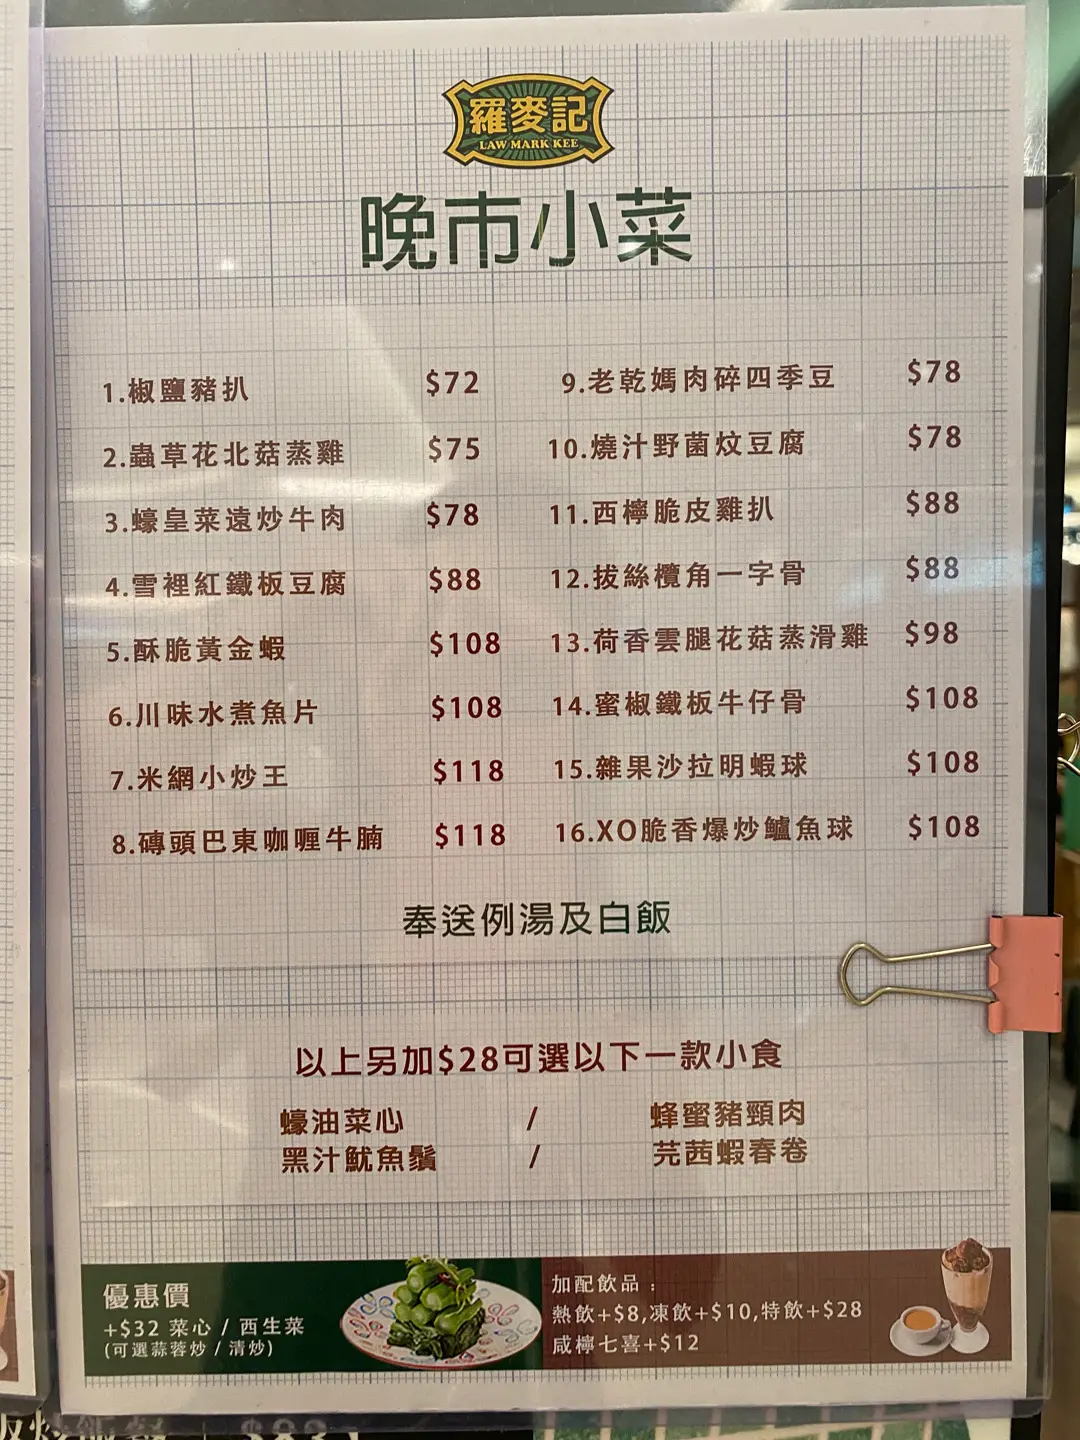 羅麥記
LAW MARK KEE
晚市小菜
1.椒鹽豬扒 $72
2.蟲草花北菇蒸雞 $75
3.蠔皇菜遠炒牛肉 $78
4.雪裡紅鐵板豆腐 $88
5.酥脆黃金蝦 $108
6.川味水煮魚片 $108
7.米網小炒王 $118
8.磚頭巴東咖喱牛腩 $118
9.老乾媽肉碎四季豆 $78
10.燒汁野菌炆豆腐 $78
11.西檸脆皮雞扒 $88
12.拔絲欖角一字骨 $88
13.荷香雲腿花菇蒸滑雞 $98
14.蜜椒鐵板牛仔骨 $108
15.雜果沙拉明蝦球 $108
16.XO脆香爆炒鱸魚球 $108
奉送例湯及白飯
以上另加$28可選以下一款小食
蠔油菜心 / 蜂蜜豬頸肉
黑汁魷魚鬚 / 芫茜蝦春卷
優惠價
+$32 菜心 / 西生菜
(可選蒜蓉炒 / 清炒)
加配飲品：
熱飲+$8,凍飲+$10,特飲+$28
咸檸七喜+$12